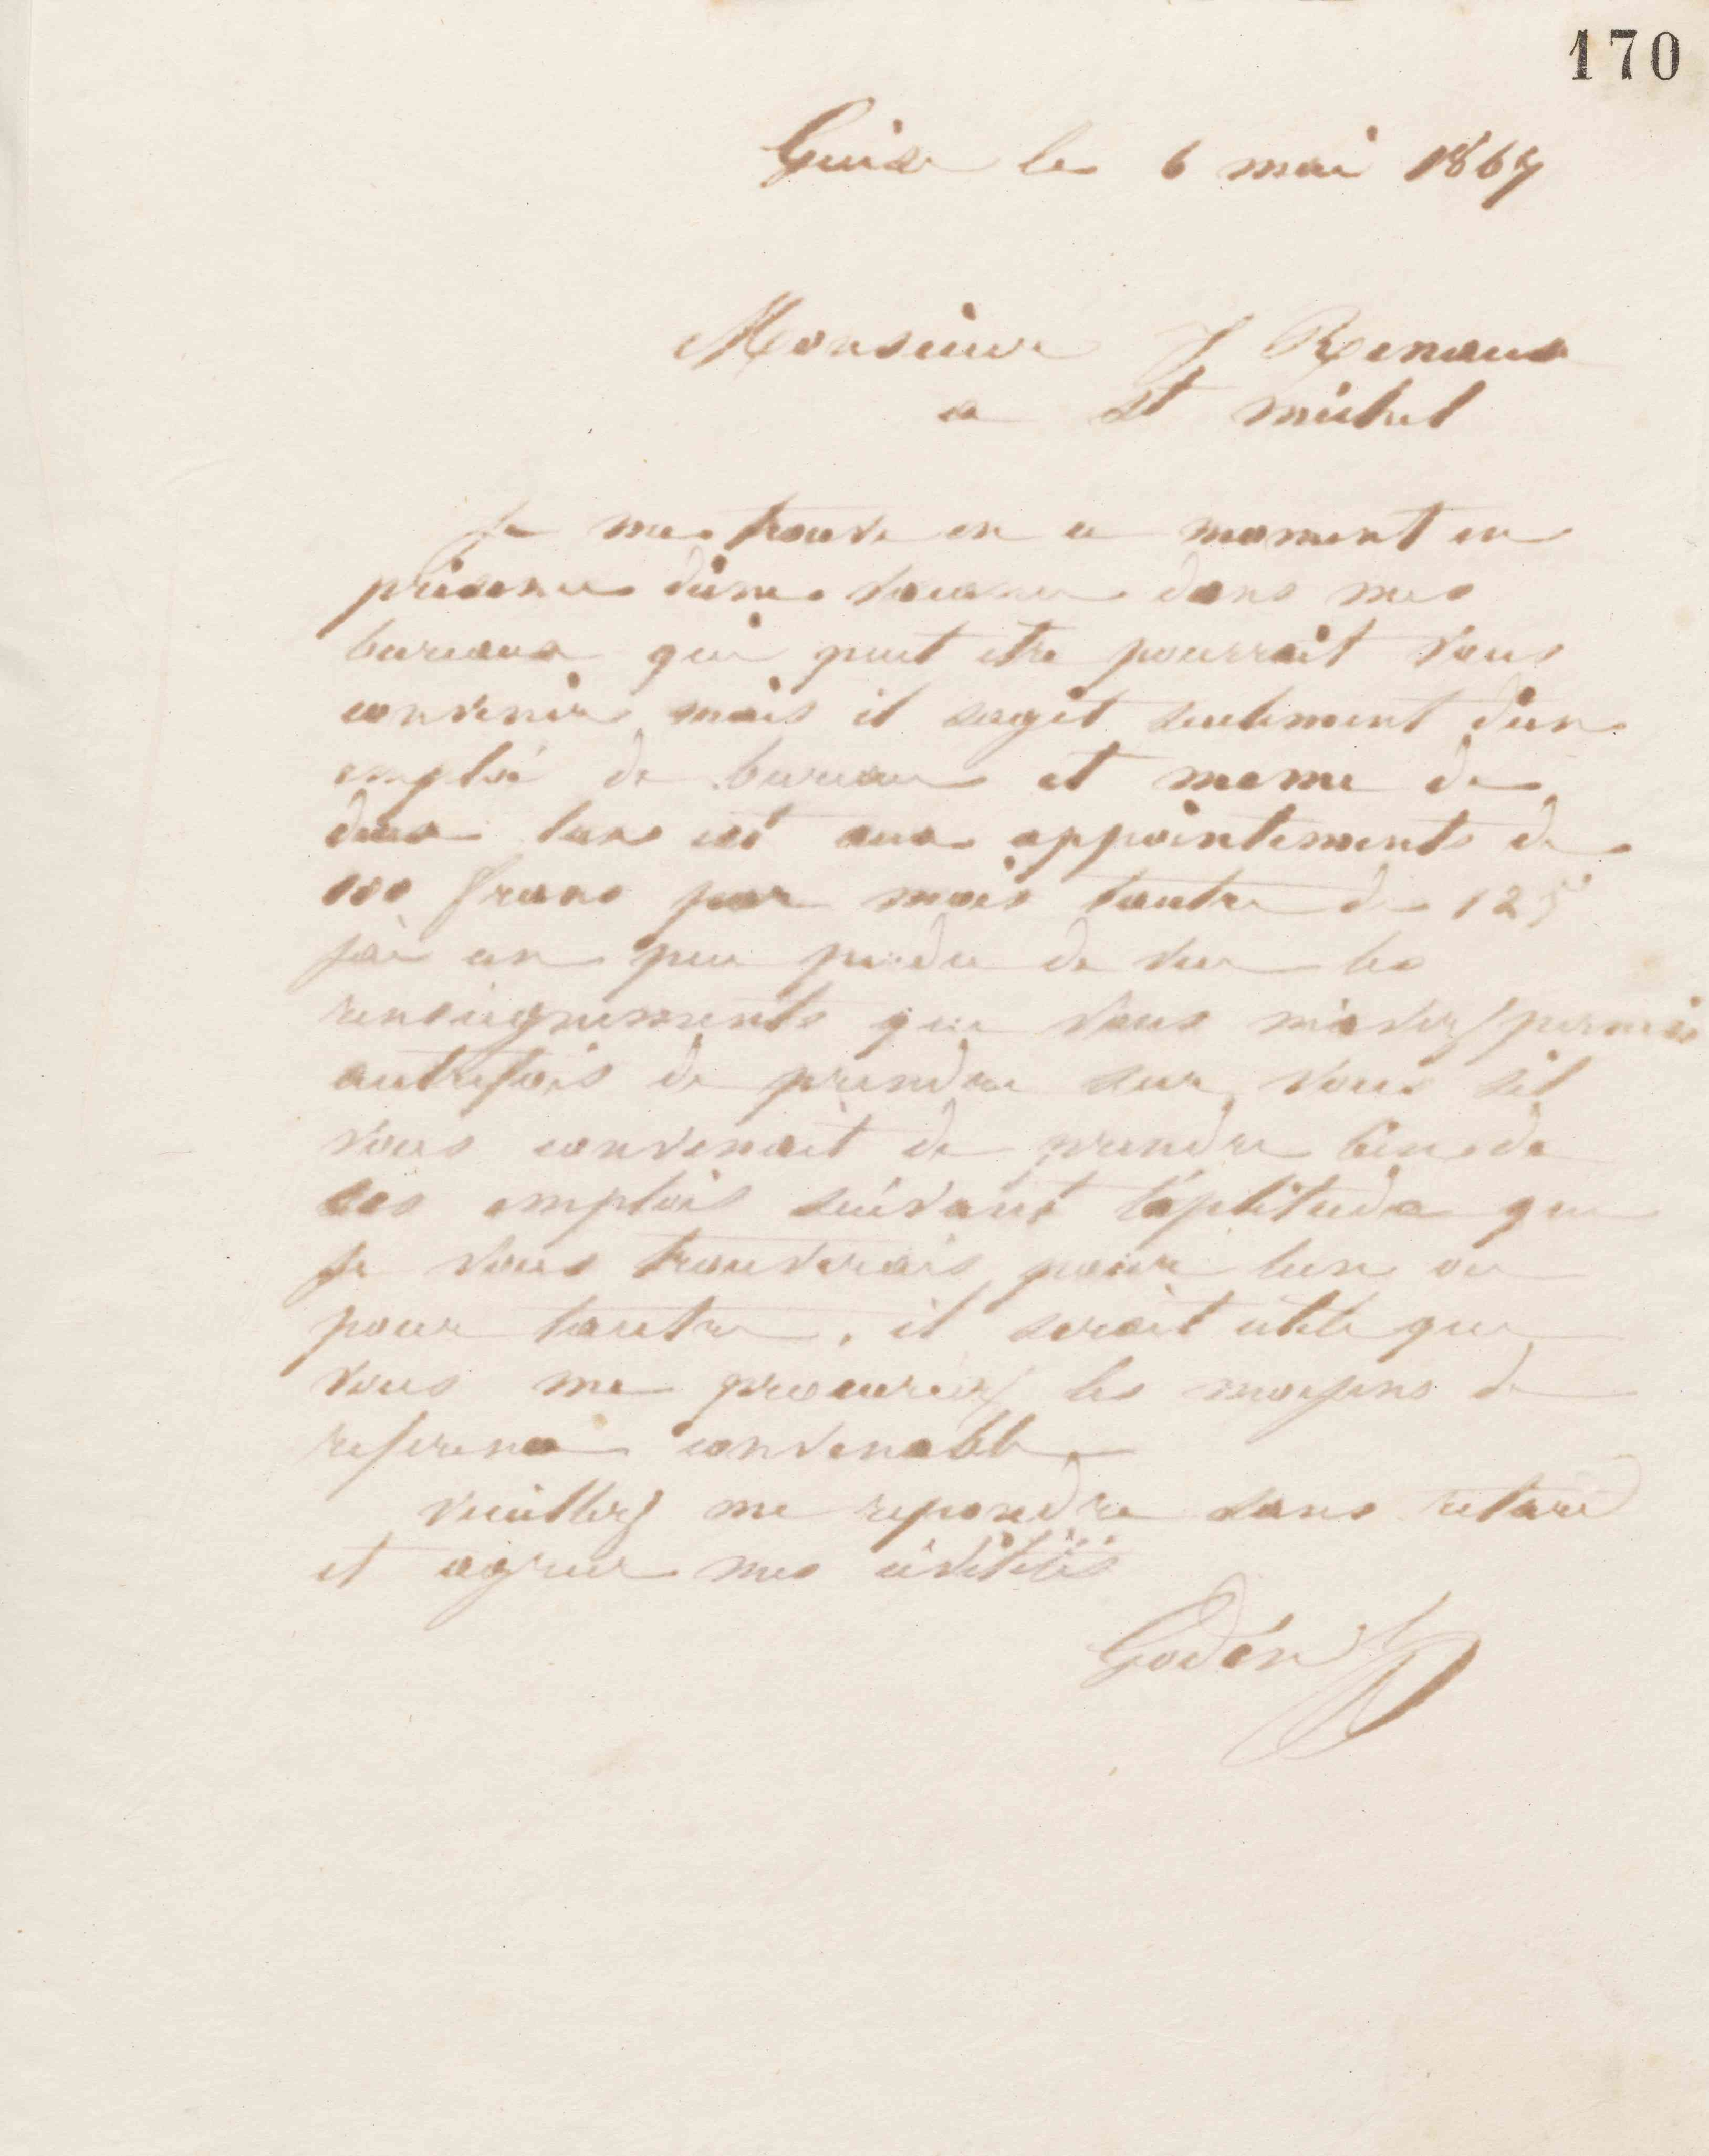 170
Guise le 6 mai 1867
Monsieur J Renaud
a St michel
Je me trouve en ce moment en
présence d'une vacance dans mes
bureaux qui peut etre pourrait vous
convenir mais il sagit seulement d'un
emploi de bureau et meme de
deux lun est aux appointements de
100 francs par mois lautre de 125
jai un peu perdu de vue les
renseignements que vous m'avez permis
autrefois de prendre sur vous sil
vous convenait de prendre l'un de
ces emplois suivant l'aptitude que
je vous trouverais pour lun ou
pour lautre, il serait utile que
vous me procuriez les moyens de
reference convenable
veuillez me repondre sans retard
et agreer mes civilités
Godin